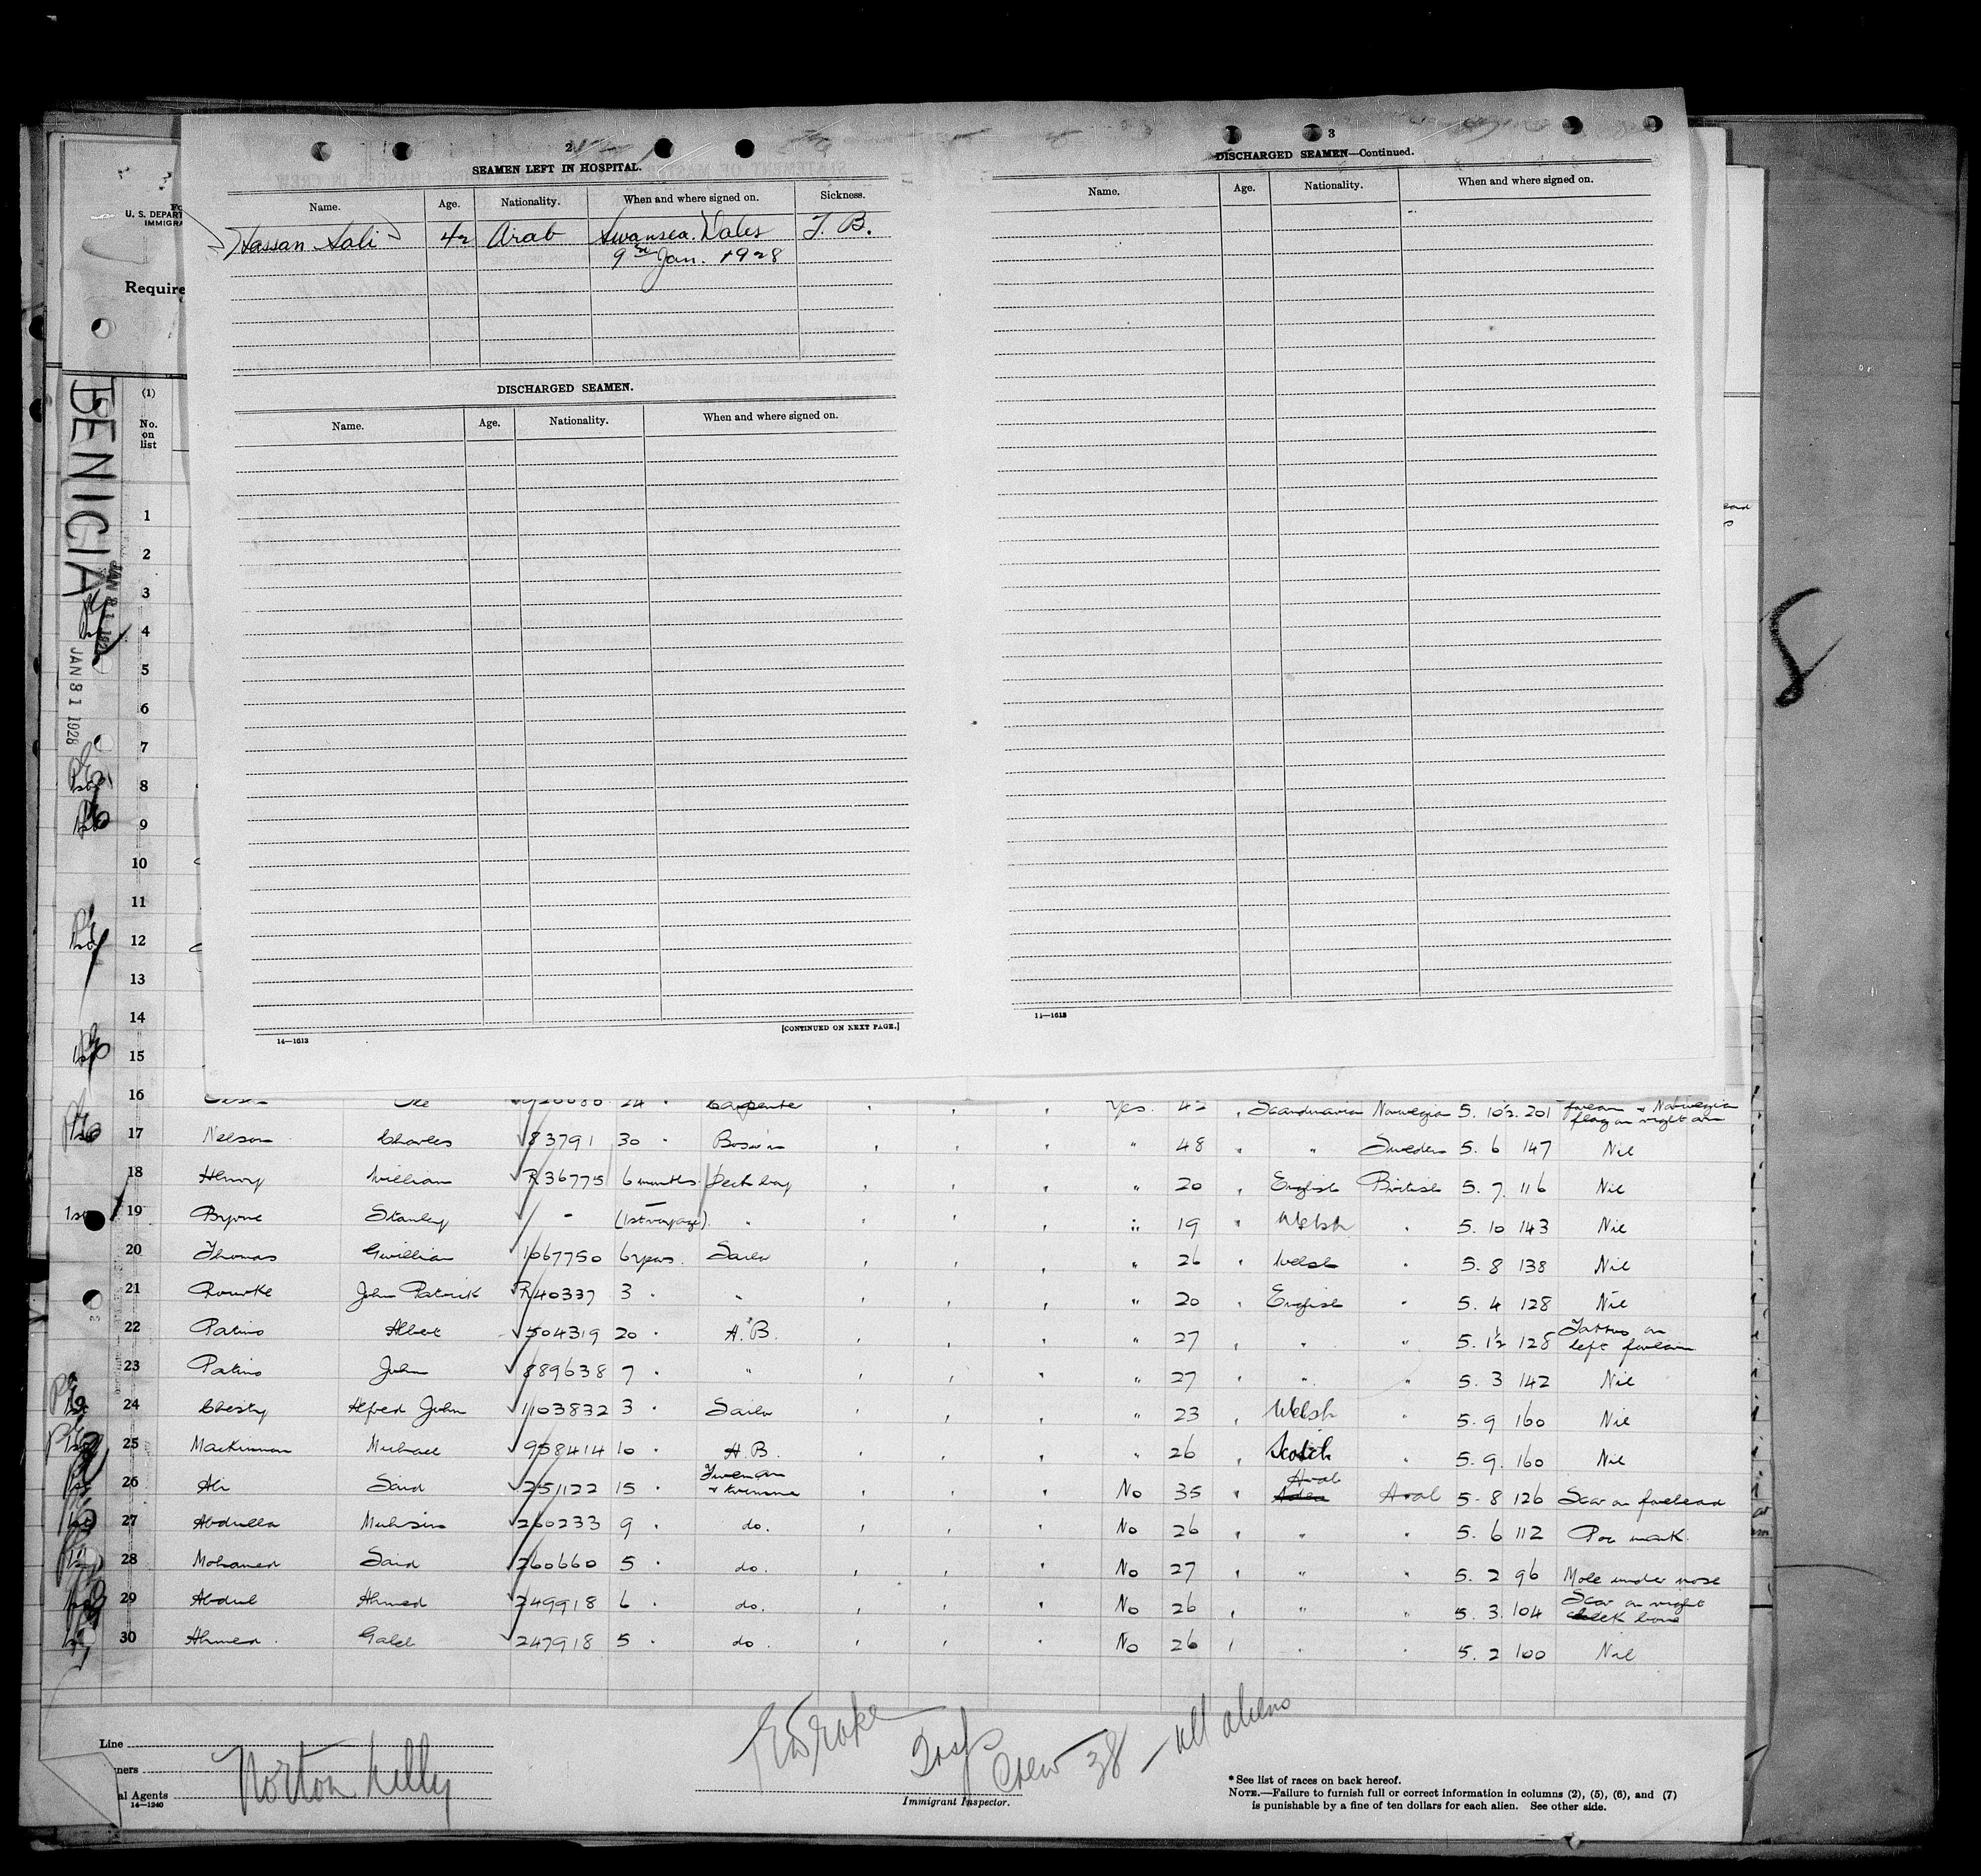 2
SEAMEN LEFT IN HOSPITAL.
Name. Age. Nationality. When and where signed on. Sickness.
Hassan Sali 42 Arab Swansea. Wales T. B.
9th Jan. 1928
DISCHARGED SEAMEN.
Name. Age. Nationality. When and where signed on.
14—1613
[CONTINUED ON NEXT PAGE.]
3
DISCHARGED SEAMEN—Continued.
Name. Age. Nationality. When and where signed on.
14—1613
U. S. DEPART
IMMIGRA
Require
(1)
No.
on
list
BENICIA
JAN 31 1928
1
2
3
4
5
6
7
8
9
10
11
12
13
14
15
16 Ole 24 Carpenter Yes. 42 Scandinavian Norwegian 5. 10½. 201 forearm & Norwegian
flag on right arm
17 Nelson Charles 83791 30 " Bosun " 48 " " Sweden 5. 6 147 Nil
18 Henry William R36775 6 months Deck boy " 20 " English British 5. 7. 116 Nil
19 Byrne Stanley - (1st voyage) " " 19 " Welsh " 5. 10 143 Nil
20 Thomas Gwillian 1067750 6 years. Sailor " 26 " Welsh " 5. 8 138 Nil
21 Rourke John Patrick R40337 3 " " " 20 " English " 5. 4 128 Nil
22 Patino Albert 504319 20 " A.B. " 27 " " " 5. 1½ 128 Tattoo on
left forearm
23 Patino John 889638 7 " " " 27 " " " 5. 3 142 Nil
24 Chesty Alfred John 1103832 3 " Sailor " 23 " Welsh " 5. 9 160 Nil
25 MacKinnon Michael 958414 10 " A.B. " 26 " Scotch " 5. 9. 160 Nil
26 Ali Said 251122 15 " Fireman
& trimmer No 35 " Arab Arab 5. 8 126 Scar on forehead
27 Abdulla Muhsin 260233 9 " do. No 26 " " " 5. 6 112 Poc mark
28 Mohamed Said 260660 5 " do. No 27 " " " 5. 2 96 Mole under nose
29 Abdul Ahmed 249918 6 " do. No 26 " " " 5. 3. 104 Scar on right
cheek bone
30 Ahmed Galel 247918 5 " do. No 26 " " " 5. 2 100 Nil
Line
ners
al Agents
14—1240
Norton Lilly
Crew 38 — all aliens
Immigrant Inspector.
*See list of races on back hereof.
NOTE.—Failure to furnish full or correct information in columns (2), (5), (6), and (7)
is punishable by a fine of ten dollars for each alien. See other side.
8